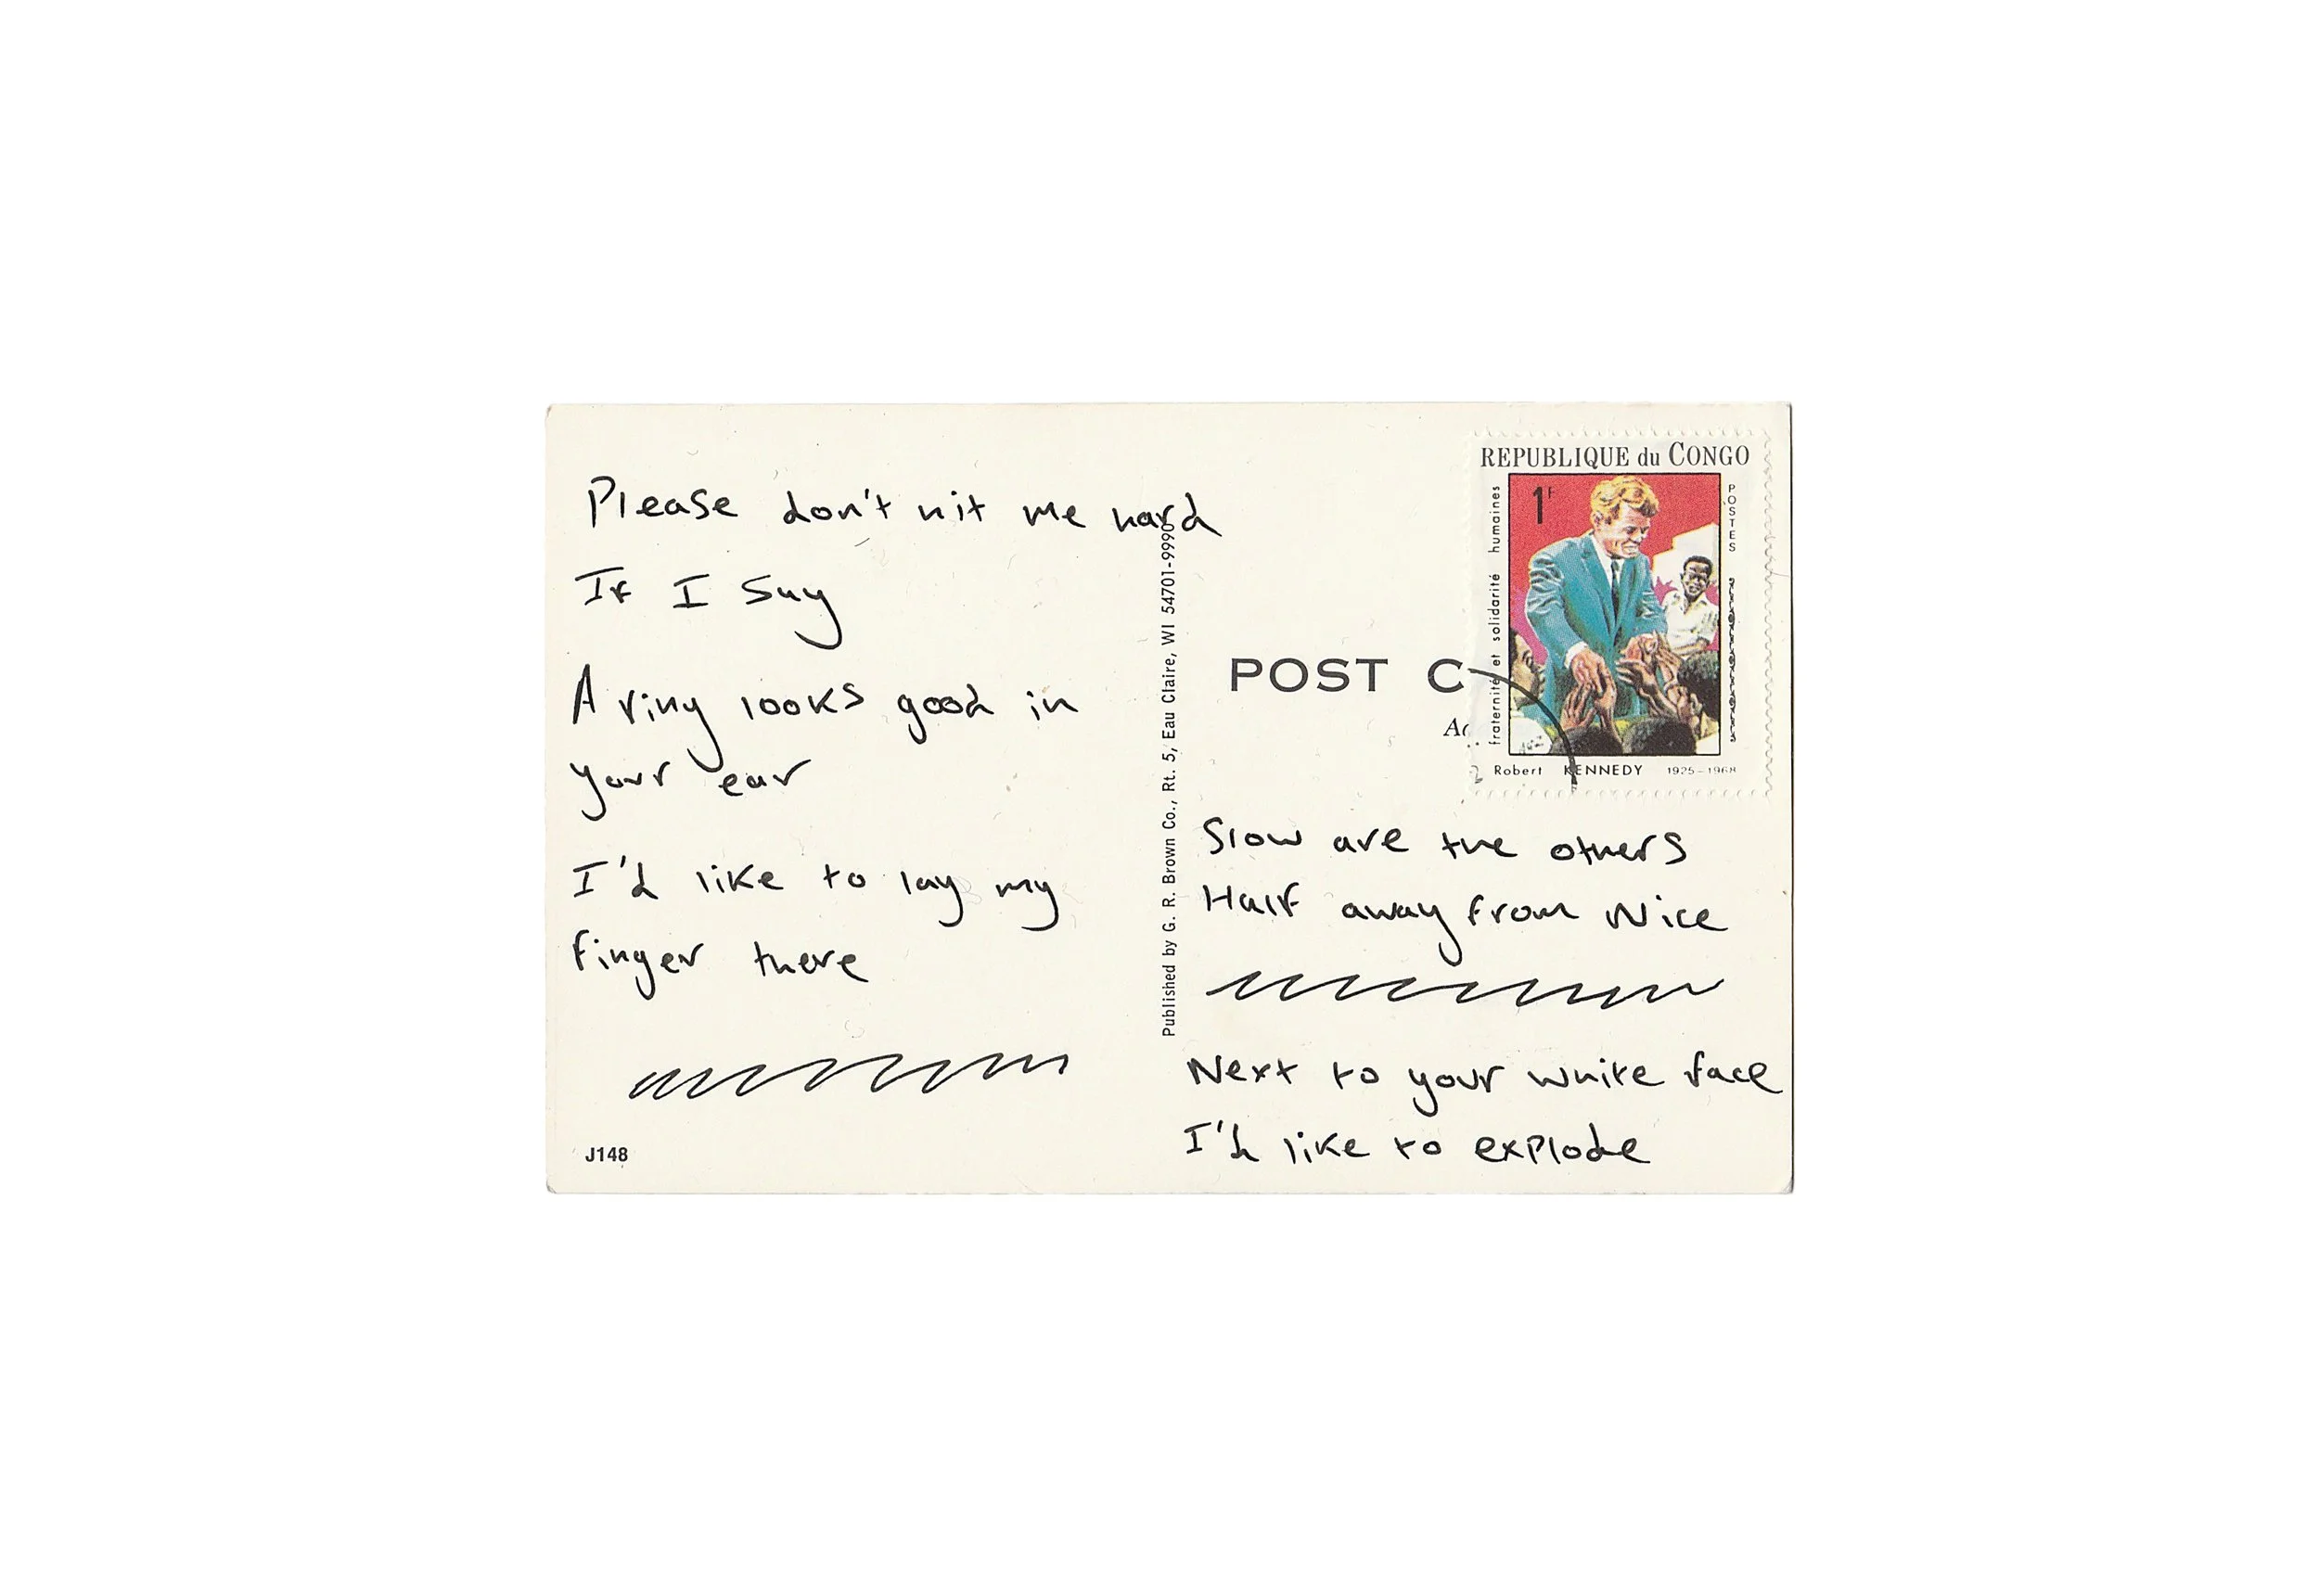 Please don't hit me hard
If I say
A ring looks good in
your ear
I'd like to lay my
finger there
J148
Published by G. R. Brown Co., Rt. 5, Eau Claire, WI 54701-9990
POST C
REPUBLIQUE du CONGO
1F
POSTES
fraternité et solidarité humaines
Robert KENNEDY 1925-1968
Slow are the others
Half away from Nice
Next to your white face
I'd like to explode